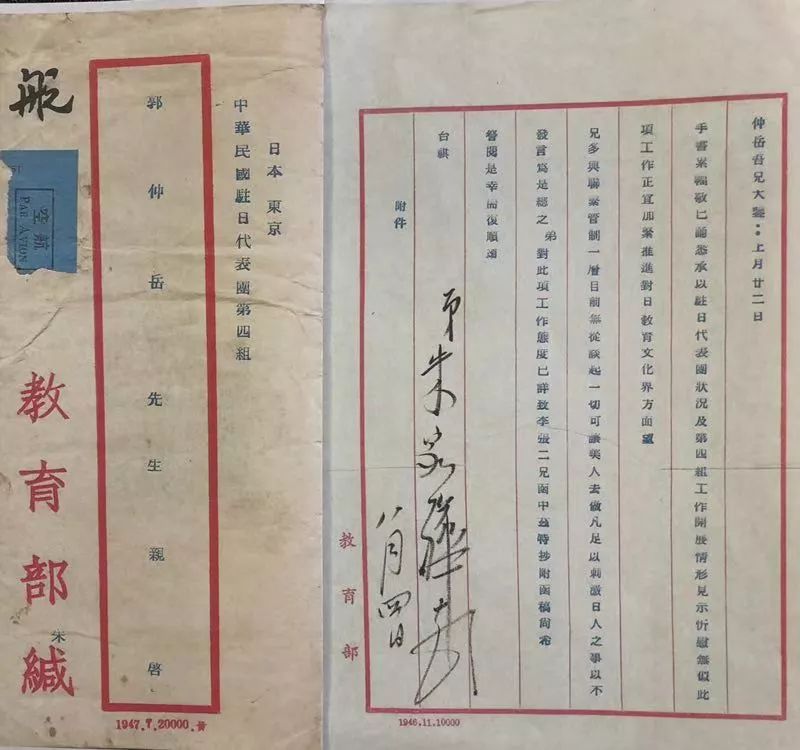 航
航空
PAR AVION
日本 東京
中華民國駐日代表團第四組
郭仲岳先生親啓
教育部緘
朱
1947.7.20000.
仲岳吾兄大鑒：上月廿二日
手書累幅敬已誦悉承以駐日代表團狀況及第四組工作開展情形見示忻慰無似此
項工作正宜加緊推進對日教育文化界方面望
兄多與聯繫管制一層目前無從談起一切可讓美人去做凡足以刺激日人之事以不
發言爲是總之弟對此項工作態度已詳致李張二兄函中茲特抄附函稿尚希
詧閱是幸耑復順頌
台祺
附件
弟朱家驊
八月四日
教育部
1946.11.10000